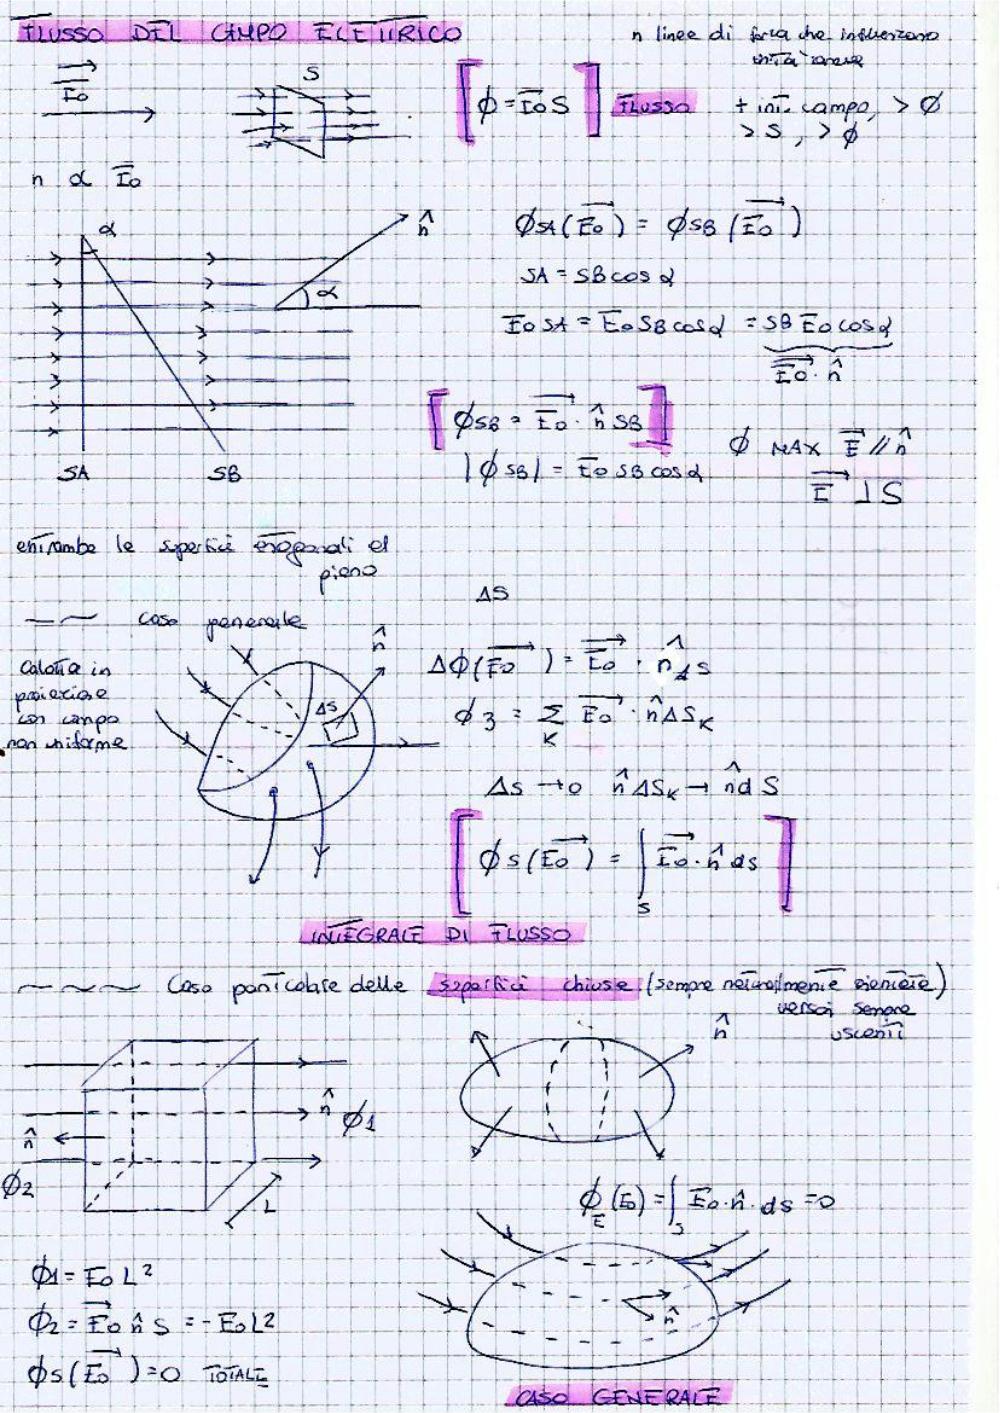 FLUSSO DEL CAMPO ELETTRICO
n linee di forza che
E₀
S
[ϕ = E₀S] FLUSSO
+ int. campo, > ϕ
> S, > ϕ
n α E₀
α
n̂
α
ϕSA(E₀) = ϕSB(E₀)
SA = SB cos α
E₀ SA = E₀ SB cos α = SB E₀ cos α
E₀ · n̂
[ϕSB = E₀ · n̂ SB]
|ϕSB| = E₀ SB cos α
ϕ MAX E // n̂
E ⊥ S
SA SB
entrambe le superfici ortogonali al
piano
ΔS
caso generale
n̂
calotta in
proiezione
con campo
non uniforme
ΔS
Δϕ(E₀) = E₀ · n̂ΔS
ϕ3 = Σ E₀ · n̂ΔSK
K
ΔS → 0 n̂ΔSK → n̂dS
[ϕS(E₀) = ∫ E₀ · n̂ ds]
S
INTEGRALE DI FLUSSO
Caso particolare delle superfici chiuse (sempre naturalmente orientate)
versori sempre
uscenti
n̂
n̂ ϕ1
n̂
ϕ2
L
ϕE(E₀) = ∫S E₀ · n̂ · ds = 0
n̂
ϕ1 = E₀L²
ϕ2 = E₀ n̂ S = -E₀L²
ϕS(E₀) = 0 TOTALE
CASO GENERALE